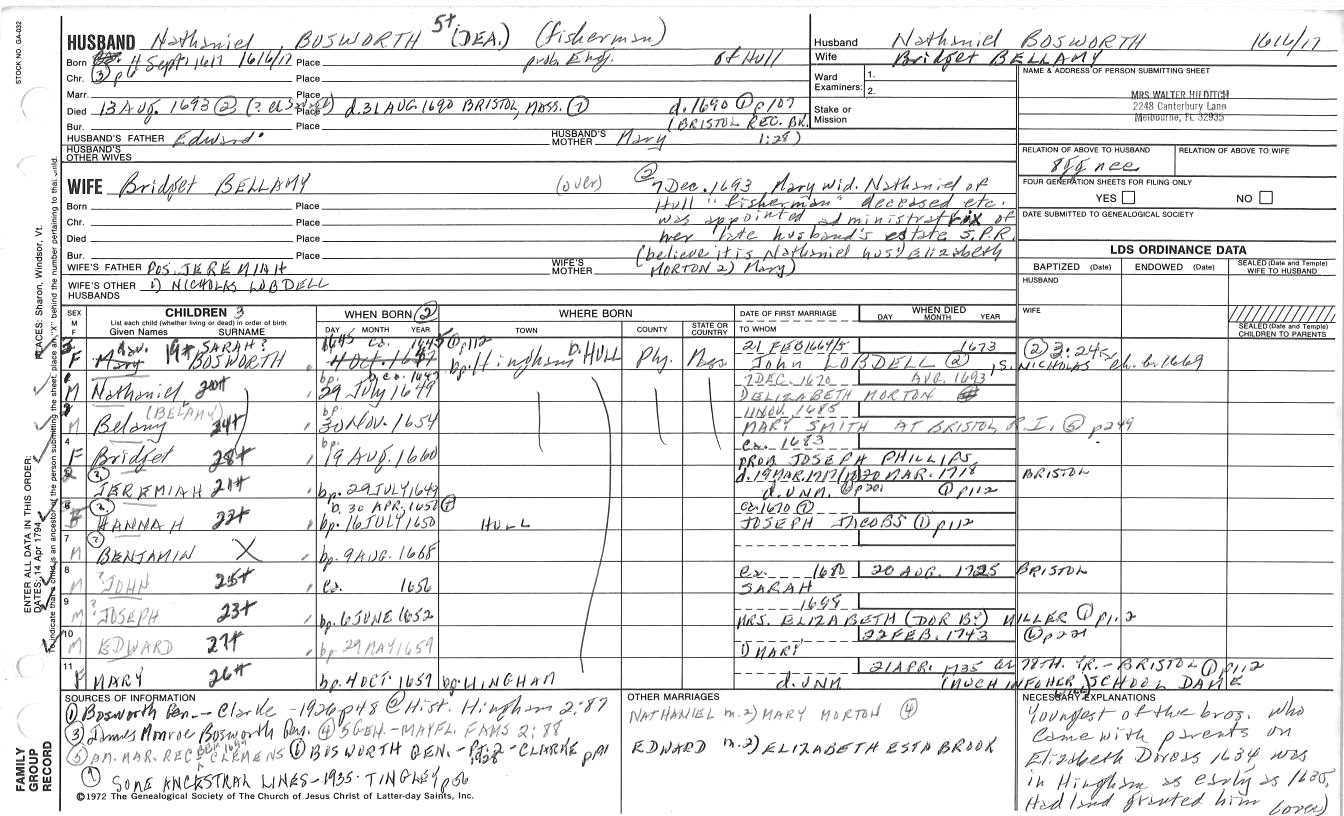 STOCK NO. GA-032
HUSBAND Nathaniel BOSWORTH 5+ (DEA.) (fisherman)
Born Sept 1617 1616/17 Place prob. Eng. of Hull
Chr. ③ p6 Place
Marr. Place
Died 13 AUG. 1693 ② Place d. 31 AUG 1690 BRISTOL, MASS. ① d. 1690 ① p107
Bur. Place (BRISTOL REC. BK. 1:28)
HUSBAND'S FATHER Edward HUSBAND'S MOTHER Mary
HUSBAND'S OTHER WIVES
Husband Nathaniel BOSWORTH 1616/17
Wife Bridget BELLAMY
Ward 1.
Examiners: 2.
Stake or Mission
NAME & ADDRESS OF PERSON SUBMITTING SHEET
MRS WALTER HILDITCH
2248 Canterbury Lane
Melbourne, FL 32935
RELATION OF ABOVE TO HUSBAND RELATION OF ABOVE TO WIFE
FOUR GENERATION SHEETS FOR FILING ONLY
YES NO
DATE SUBMITTED TO GENEALOGICAL SOCIETY
LDS ORDINANCE DATA
BAPTIZED (Date) ENDOWED (Date) SEALED (Date and Temple) WIFE TO HUSBAND
HUSBAND
WIFE
SEALED (Date and Temple) CHILDREN TO PARENTS
WIFE Bridget BELLAMY (over)
② 7 Dec. 1693 Mary wid. Nathaniel of
Hull "fisherman" deceased etc.
was appointed administratrix of
her late husband's estate S.P.R.
(believe it is Nathaniel hus. Elizabeth
MORTON 2) Mary)
Born Place
Chr. Place
Died Place
Bur. Place
WIFE'S FATHER POS. JEREMIAH WIFE'S MOTHER
WIFE'S OTHER HUSBANDS 1) NICHOLAS LOBDELL
SEX M F
CHILDREN 3
List each child (whether living or dead) in order of birth
Given Names SURNAME
WHEN BORN ②
DAY MONTH YEAR
WHERE BORN
TOWN COUNTY STATE OR COUNTRY
DATE OF FIRST MARRIAGE
TO WHOM
WHEN DIED
DAY MONTH YEAR
F Mary 19+ SARAH? BOSWORTH bp. Hingham D. HULL Ply. Mass 21 FEB 1664/5 1673
John LOBDELL ②, S. NICHOLAS
② 3:24
M Nathaniel 20+ bp. 29 July 1649 7 DEC. 1670 AUG. 1693
ELIZABETH MORTON
M Belamy (BELAMY) 24+ bp. 30 Nov. 1654 11 NOV. 1685
MARY SMITH AT BRISTOL R.I. ⑤ p249
4 F Bridget 28+ bp. 19 AUG. 1660 ca. 1683
PROB JOSEPH PHILLIPS
JEREMIAH 21+ bp. 29 JULY 1649 20 MAR. 1718 BRISTOL
d. UNM. ⑥ p201 ① p112
HANNAH 22+ b. 30 APR. 1650
bp. 16 JULY 1650 HULL ca. 1670 ①
JOSEPH JACOBS ① p112
7 M BENJAMIN X bp. 9 AUG. 1668
8 M ?JOHN 25+ ca. 1656 ca. 1680 20 AUG. 1725 BRISTOL
SARAH
9 M ?JOSEPH 23+ bp. 6 JUNE 1652 1698
MRS. ELIZABETH (DORBY) MILLER ① p112
10 M EDWARD 27+ bp. 29 MAY 1659 22 FEB. 1743
1) MARY
11 F MARY 26+ bp. 4 OCT. 1657 bp. HINGHAM 21 APR. 1735 78TH. YR. - BRISTOL ① p112
d. UNM SCHOOL DAME
ENTER ALL DATA IN THIS ORDER:
DATES: 14 Apr 1794
PLACES: Sharon, Windsor, Vt.
To indicate that a child is an ancestor of the person submitting the sheet, place an "X" behind the number pertaining to that child.
FAMILY GROUP RECORD
SOURCES OF INFORMATION
① Bosworth Gen. — Clarke — 1926 p48 @ Hist. Hingham 2:87
③ James Monroe Bosworth Gen. ④ 5 GEN-MAYFL FAMS 2:88
⑤ AM. MAR. REC CLEMENS ① BOSWORTH GEN. - Pt. 2 - CLARKE
SOME ANCESTRAL LINES - 1935 - TINGLEY p56
OTHER MARRIAGES
NATHANIEL m. 2) MARY MORTON ④
EDWARD m. 2) ELIZABETH ESTABROOK
NECESSARY EXPLANATIONS
Youngest of the bros. who
came with parents on
Elizabeth Dorcas 1634 was
in Hingham as early as 1635,
Had land granted him (over)
©1972 The Genealogical Society of The Church of Jesus Christ of Latter-day Saints, Inc.